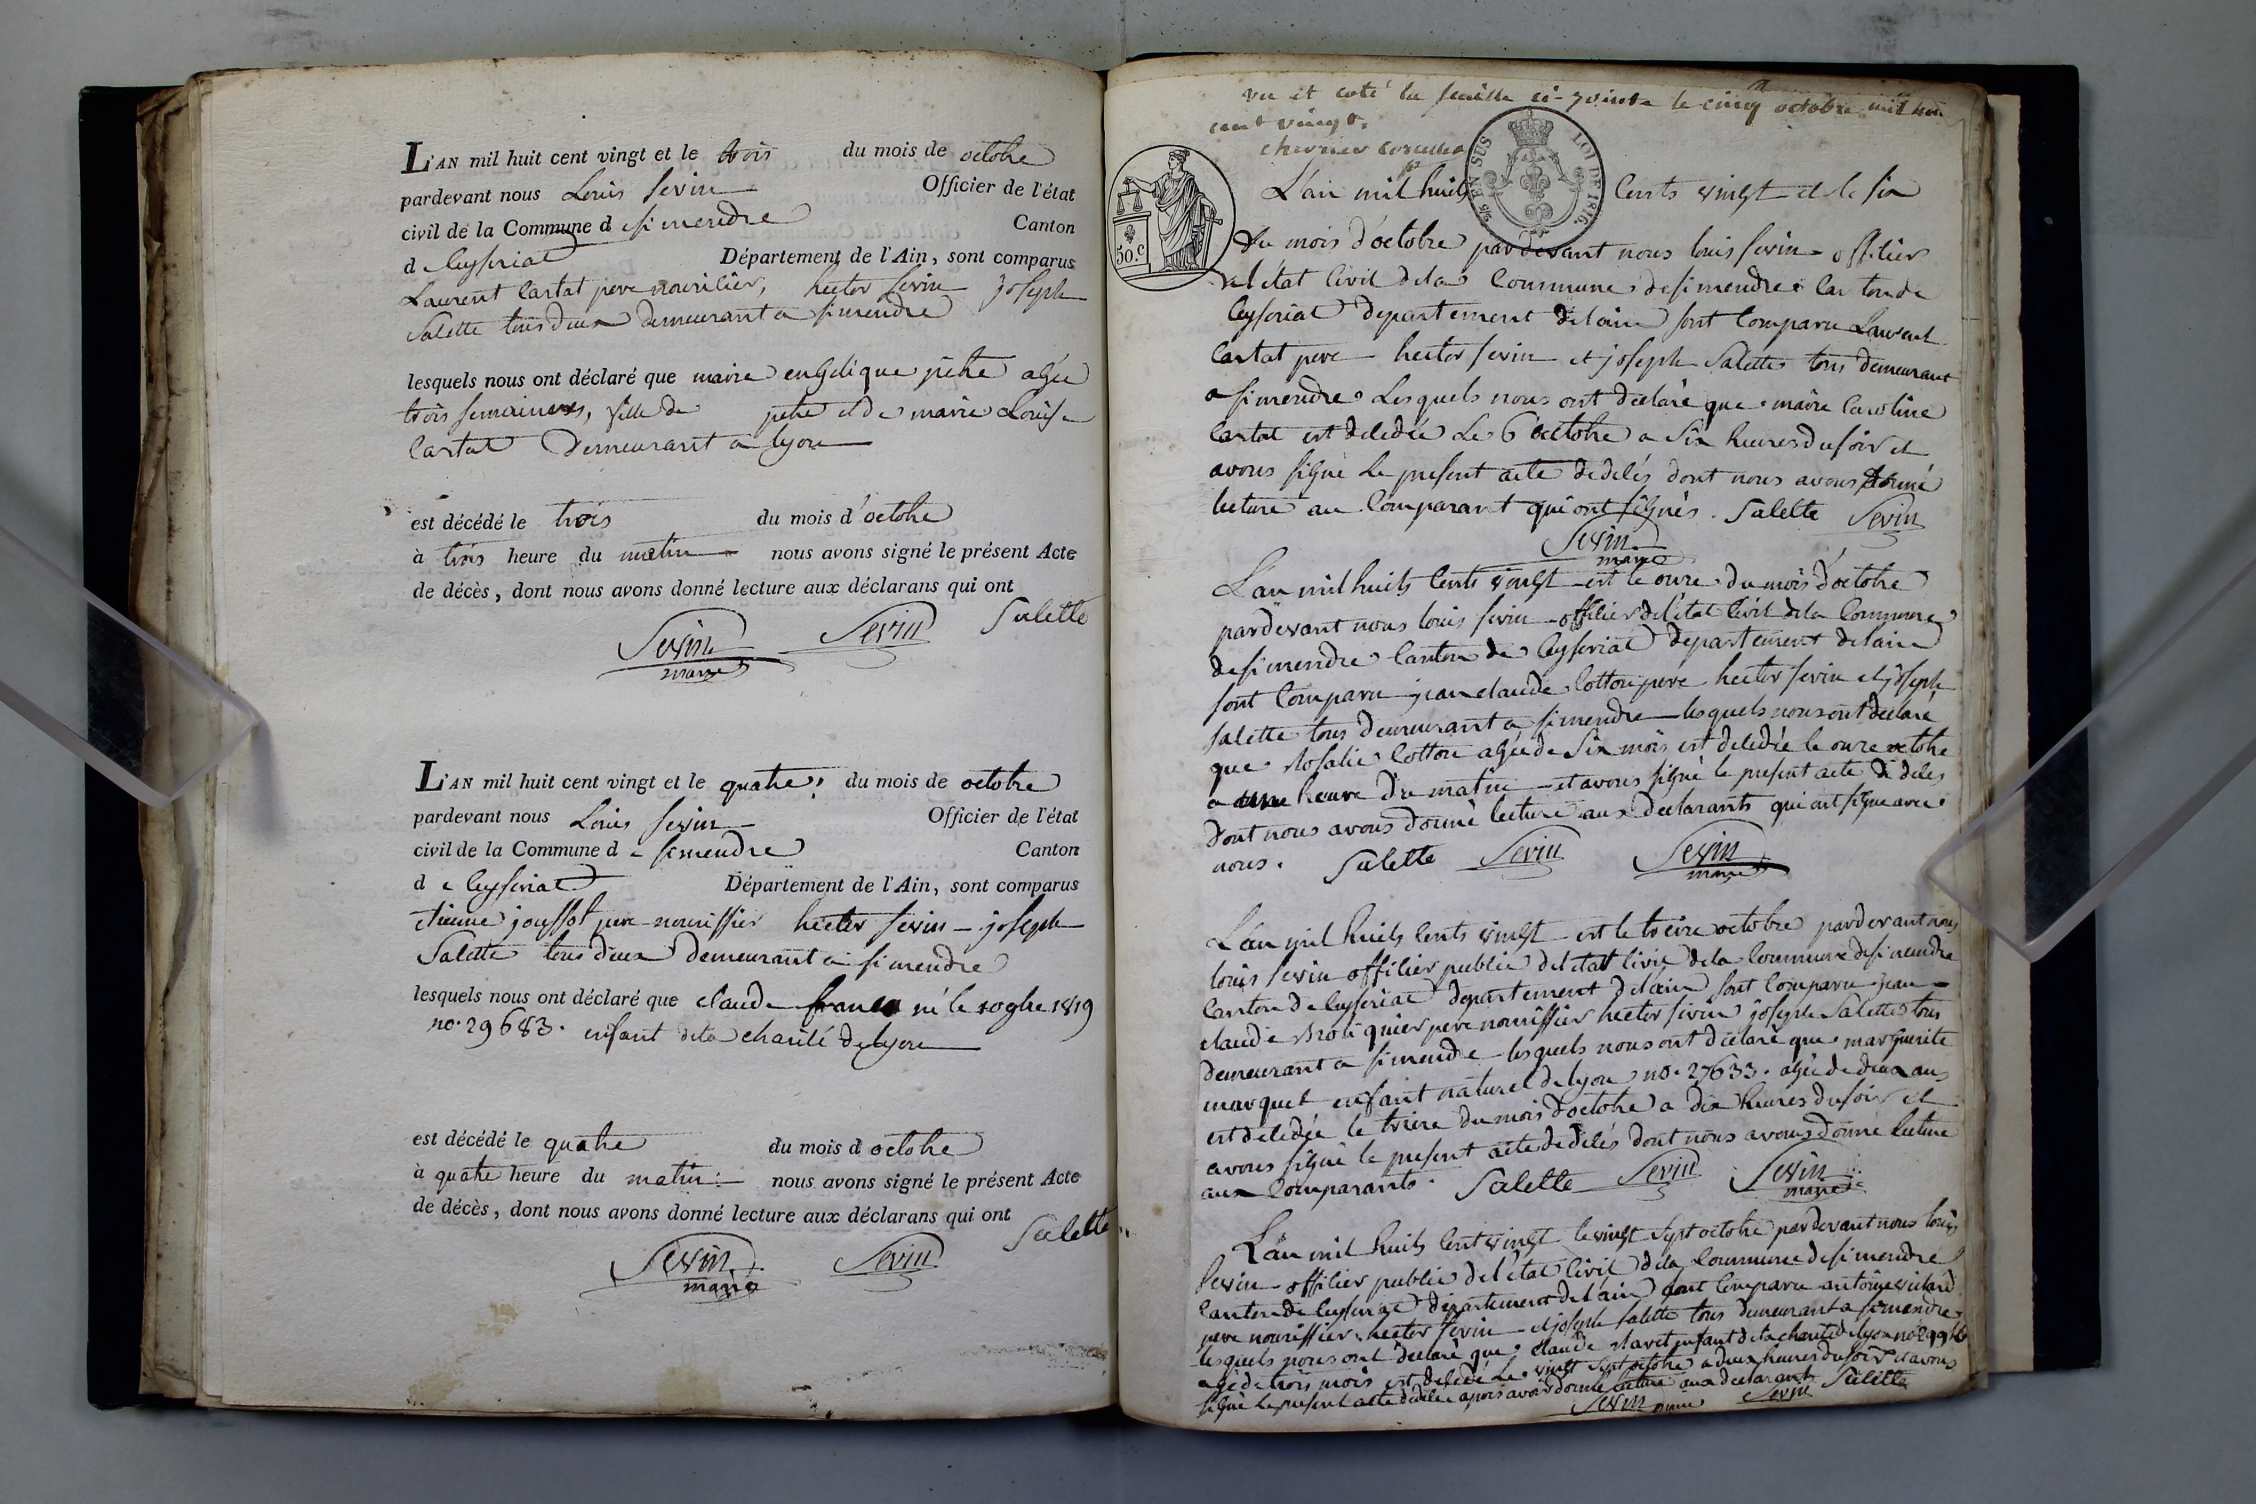 L'AN mil huit cent vingt et le trois du mois de octobre
pardevant nous Louis Sevin Officier de l'état
civil de la Commune d simendre Canton
d Ceyseriat Département de l'Ain, sont comparus
Laurent Cartat pere nouricier, hector Sevin joseph
Salette tous deux demeurant a simendre
lesquels nous ont déclaré que marie engelique pitre agée
trois semaines, fille de pitre et de marie Louise
Cartat Demeurant a lyon
est décédé le trois du mois d'octobre
à trois heure du matin nous avons signé le présent Acte
de décès, dont nous avons donné lecture aux déclarans qui ont
Sevin Sevin Salette
maire
L'AN mil huit cent vingt et le quatre du mois de octobre
pardevant nous Louis Sevin Officier de l'état
civil de la Commune d e simendre Canton
d e Ceyseriat Département de l'Ain, sont comparus
etienne joussot pere nourissier hector Sevin - joseph
Salette tous deux demeurant a simendre
lesquels nous ont déclaré que claude né le 10 9bre 1819
no. 29683. enfant dela charité de lyon
est décédé le quatre du mois d octobre
à quatre heure du matin nous avons signé le présent Acte
de décès, dont nous avons donné lecture aux déclarans qui ont
Salette
Sevin Sevin
maire
vu et coté la feuille ci-jointe le cinq octobre mil huit
cent vingt.
LOI DE 1816.
EN SUS
50.C
L'an mil huits Cents vingt et le six
Du mois d'octobre pardevant nous louis Sevin officier
de l'état Civil dela Commune de simendre Canton de
Ceyseriat departement delain sont Comparu Laurent
Cartat pere hector Sevin et joseph Salette tous demeurant
a simendre Lesquels nous ont déclaré que marie Caroline
Cartat est decedée Le 6 octobre a six heures du soir et
avons signé Le present acte de decés dont nous avons donné
lecture au Comparant qui ont signés. Salette Sevin
Sevin
maire
L'an mil huits Cents vingt est le onze du mois d'octobre
pardevant nous louis Sevin officier del'état Civil dela Commune
de simendre Canton de Ceyseriat departement delain
sont Comparu jean claude Cotton pere hector Sevin et joseph
Salette tous demeurant a simendre lesquels nous ont déclaré
que Rosalie Cotton agée de six mois est decedée le onze octobre
a une heure du matin et avons signé le present acte de deces
Dont nous avons donné lecture aux declarants qui ont signe avec
nous. Salette Sevin Sevin
maire
L'an mil huits Cents vingt est le treize octobre pardevant nous
louis Sevin officier public del'etat Civil dela Commune de simendre
Canton de Ceyseriat departement delain sont Comparu jean
claude pere nourissier hector Sevin joseph Salette tous
demeurant a simendre lesquels nous ont déclaré que marguerite
marquet enfant naturel de lyon no. 27633. agée de deux ans
est decedée le treize du mois d'octobre a dix heures du soir et
avons signé le present acte de decés dont nous avons donné lecture
aux Comparants. Salette Sevin Sevin
maire
L'an mil huits Cent vingt le vingt sept octobre pardevant nous louis
Sevin officier public de l'état Civil dela Commune de simendre
Canton de Ceyseriat departement de lain sont Comparu antoine
pere nourissier hector Sevin et joseph Salette tous demeurant a simendre
lesquels nous ont déclaré que claude enfant dela charité de lyon
agé de trois mois est decedé Le vingt sept octobre a deux heures du soir et avons
signé Le present acte de deces apres avoir donné lecture aux declarants Salette
Sevin maire Sevin